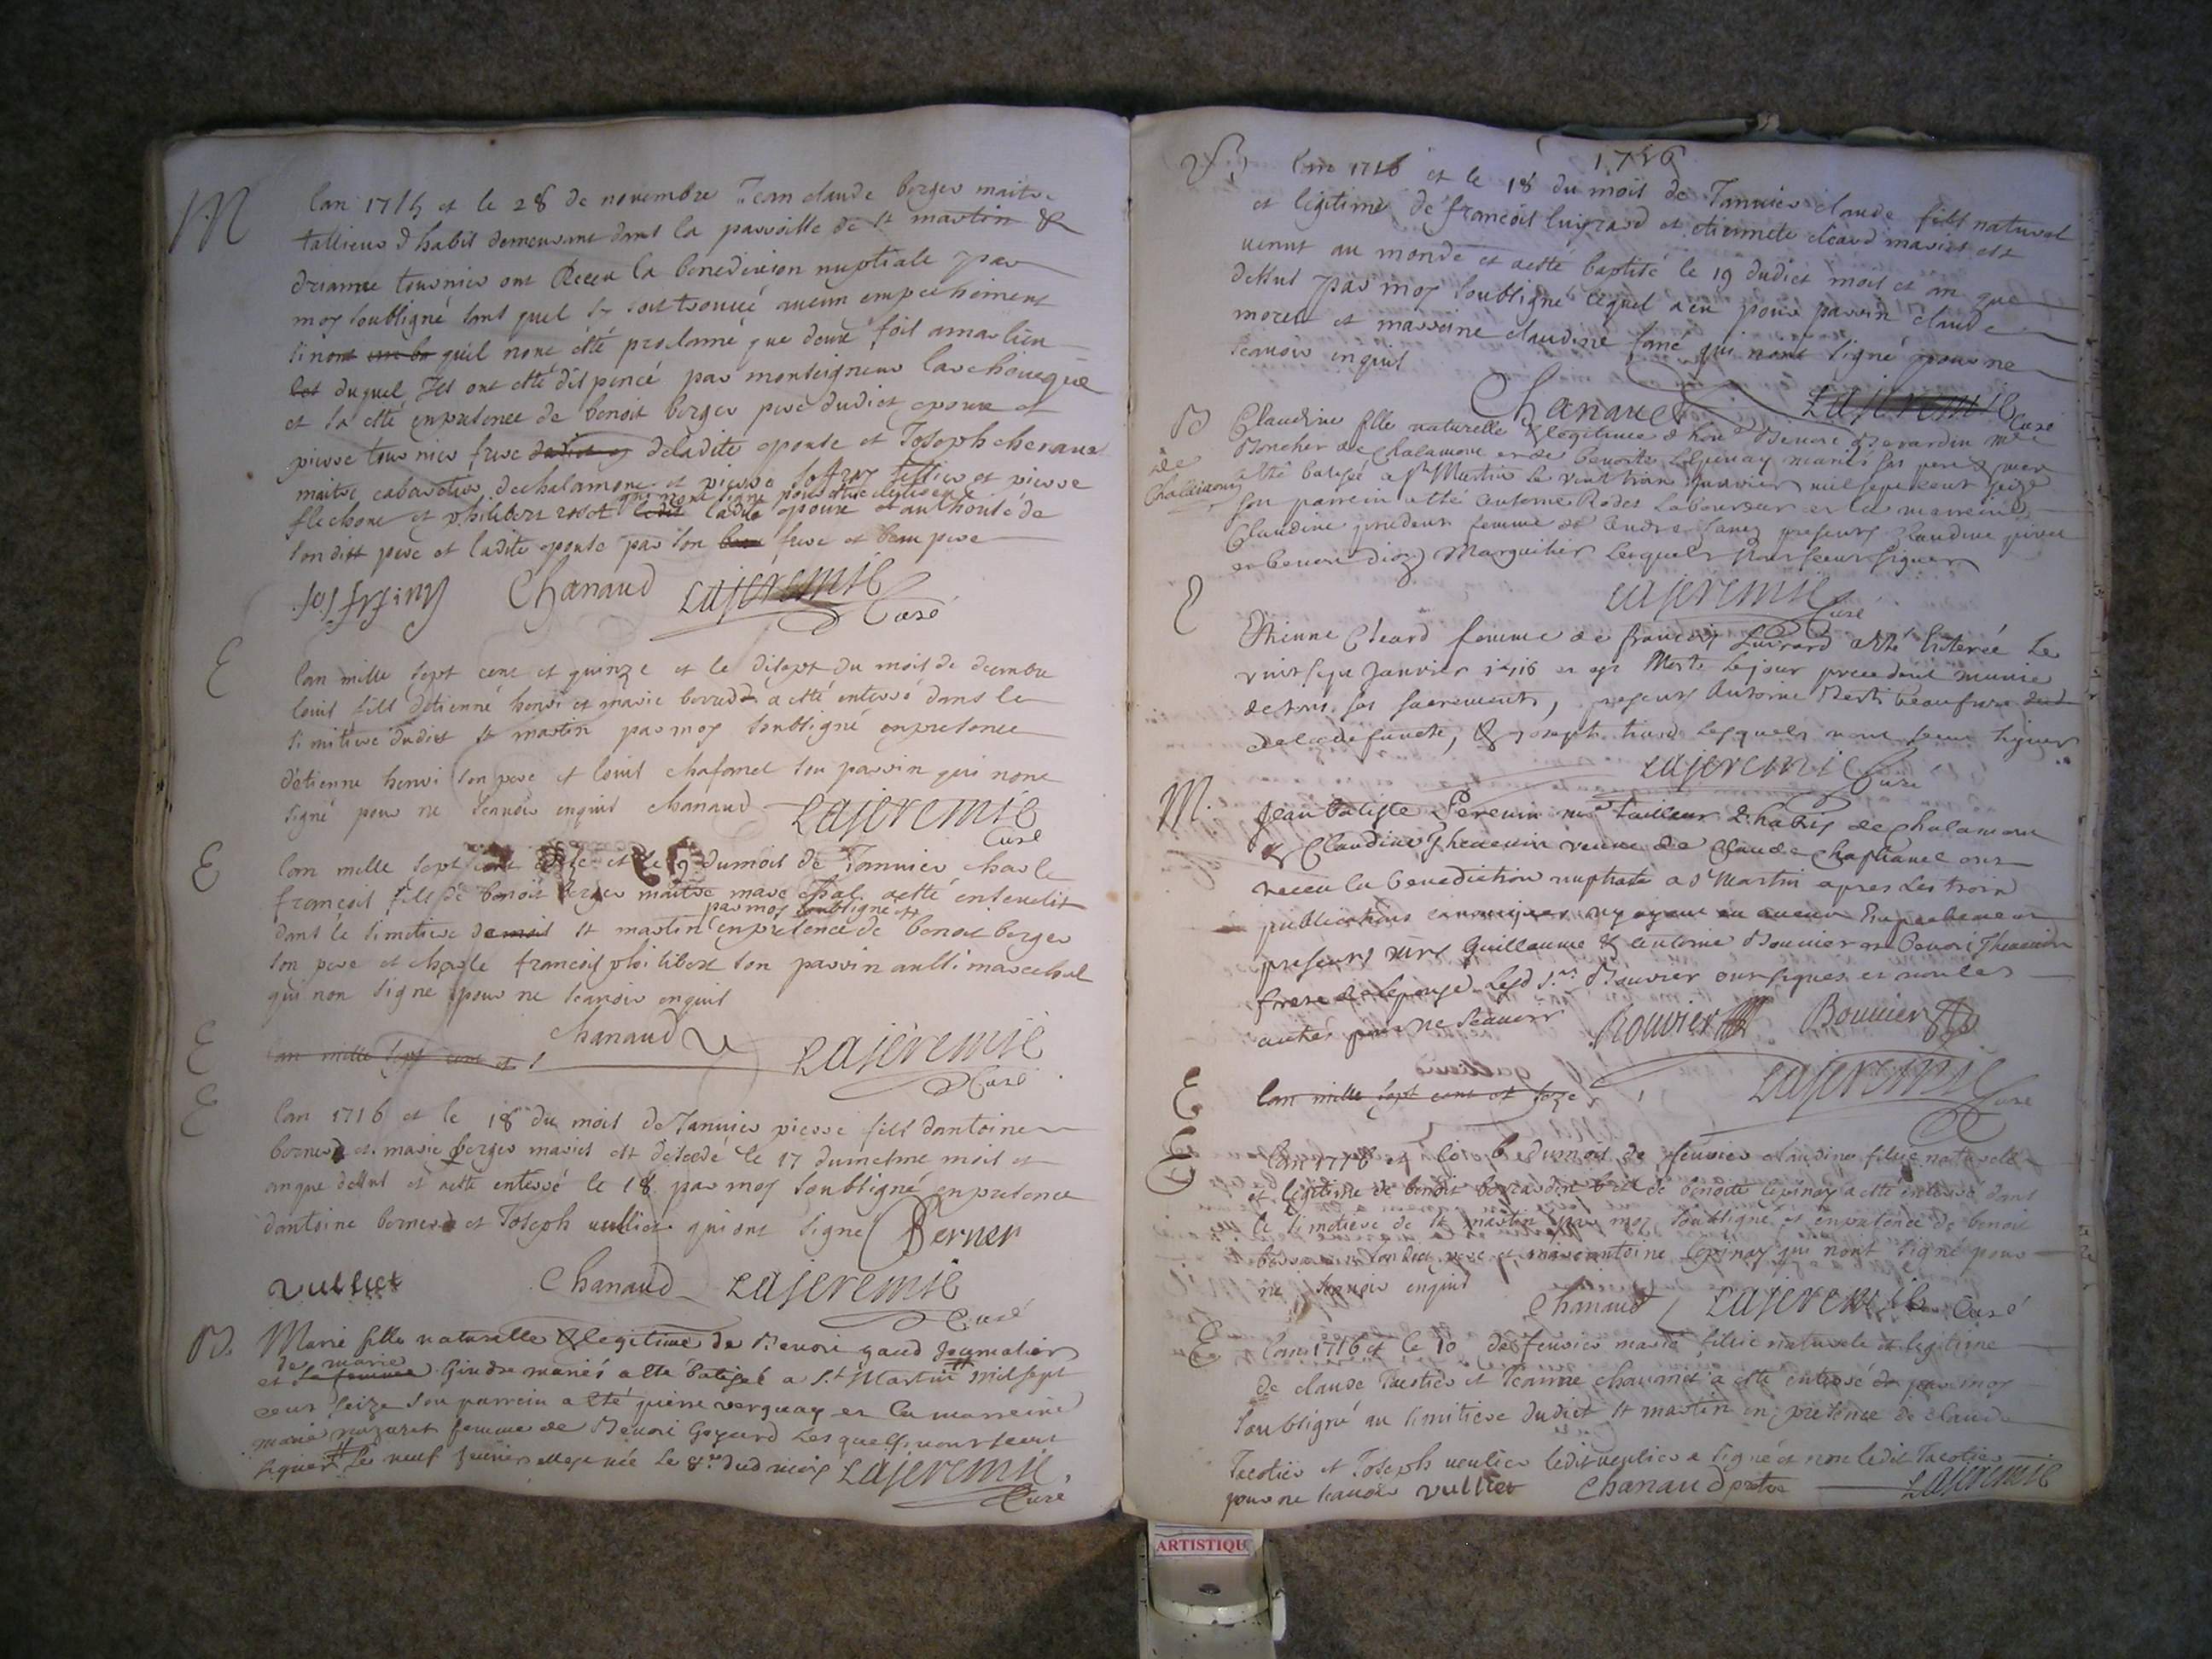 M
lan 1715 et le 28 de novembre Jean claude berger maitre
tallieur d habit demeurant dans la parroisse de st martin &
drianne tournier ont Receu la benediction nuptiale par
moy soubsigné sans quel sy soit trouvé aucun empechement
sinont qu'il nont été proclamé que deux fois amarlieu
duquel Ils ont etté dispencé par monseigneur larcheveque
et sa etté enpresence de benoit berger pere dudict epoux et
pierre tournier frere deladite epouse et Joseph chenaud
maitre cabaretier dechalamont et pierre tessier et pierre
flechont et philibert rosset qui nont signé pour etre
ladite epoux et authorisé de
son dist pere et ladite epouse par son frere et beau pere
Chanaud Lajeremie Curé
E
lan mille sept cent et quinze et le disept du mois de decembre
louis fils detienne henri et marie berrud a etté enterré dans le
simitiere dudict st martin par moy soubsigné enpresence
detienne henri son pere et louis chafanel son parrin qui nont
signé pour ne scavoir enquis chanaud Lajeremie
Curé
E
lan mille sept cent et le 9 du mois de Janvier charle
francois fils de benoit berger maitre marechal a etté enseuelit
par moy soubsigné
dans le simetiere st martin enpresence de benoit berger
son pere et charle francois philibert son parrin aussi marechal
qui non signe pour ne scavoir enquis
chanaud Lajeremie
Curé
E
lan mille sept cent et
E
lan 1716 et le 18 du mois de Janvier pierre fils dantoine
berner et marie berger mariés est decedé le 17 dumesme mois et
anque dessus et a etté enterré le 18 par moy soubsigné enpresence
dantoine berner et Joseph vulliet qui ont signe Berner
vulliet Chanaud Lajeremie
Curé
B.
Marie fille naturelle & legitime de Benoit gaud Journalier
de marie
et sa femme Gindre mariés a été batisée a St Martin # mil sept
cent seize son parrein a été pierre verguay et la marreine
marie nazaret femme de Benoit Goyard Lesquels nont sceut
signer # Le neuf janvier estant née le 8e dud mois Lajeremie
Curé
1716
B
lan 1716 et le 18 du mois de Janvier claude fils naturel
et legitime de francois luirard et etiennete cleard mariés est
venut au monde et aetté baptisé le 19 dudict mois et an que
dessus par moy soubsigné lequel a eu pour parrin claude
morel et marreine claudine fané qui nont signé pour ne
scavoir enquis
Chanaud Lajeremie
Curé
B
de
Chalamont
Claudine fille naturelle & legitime d hone Benoit Berardin Mre
Boucher de Chalamont et de benoite Lepinay mariés ses pere & mere
a été batisée a St Martin Le vint trois janvier mil sept cent seize
son parrein a été Antoine Rodes Laboureur et la marreine
Claudine prudent femme de andre presents
et benoit dioz Marguilier Lesquels nont sceut signer
Lajeremie
Curé
E
Etienne Cleard femme de francois Luirard a été Enterée Le
vint sept Janvier 1716 et est Morte Le jour precedent munie
de tous ses sacrements, presents Antoine Berti beaufrere
de la defuncte, & joseph Lesquels nont sceut signer
Lajeremie
Curé
M.
Jean Batiste Perenin me tailleur d habis de Chalamont
& Claudine Thevenin veuve de Claude Chaphanel ont
receu la benediction nuptiale a St Martin apres les trois
publications canoniques ny ayant eu aucun Empechement
presents mrs Guillaume & antoine Bouvier et Benoit Thevenin
frere de l'epouse Lesd Srs Bouvier ont signes et non les
autres pour ne scavoir Bouvier Bouvier
Lajeremie
Curé
E
lan mille sept cent et seze
E
lan 1716 et le 6 du mois de fevrier claudine fillie naturele
et legitime de benoit berrardin et de benoite lepinay a etté enterré dans
le simetiere de st martin par moy soubsigné et enpresence de benoit
berrardin son dict pere et marcantoine lepinay qui nont signé pour
ne scavoir enquis Chanaud Lajeremie Curé
E
lan 1716 et le 10 de fevrier marie fillie naturele et legitime
de claude Tacotier et Jeanne chaumet a etté enterré par moy
soubsigné au simitiere dudict st martin en presence de claude
Tacotier et Joseph veulier ledit veulier a signé et non ledit Tacotier
pour ne scavoir vulliet Chanaud pretre Lajeremie
ARTISTIQU